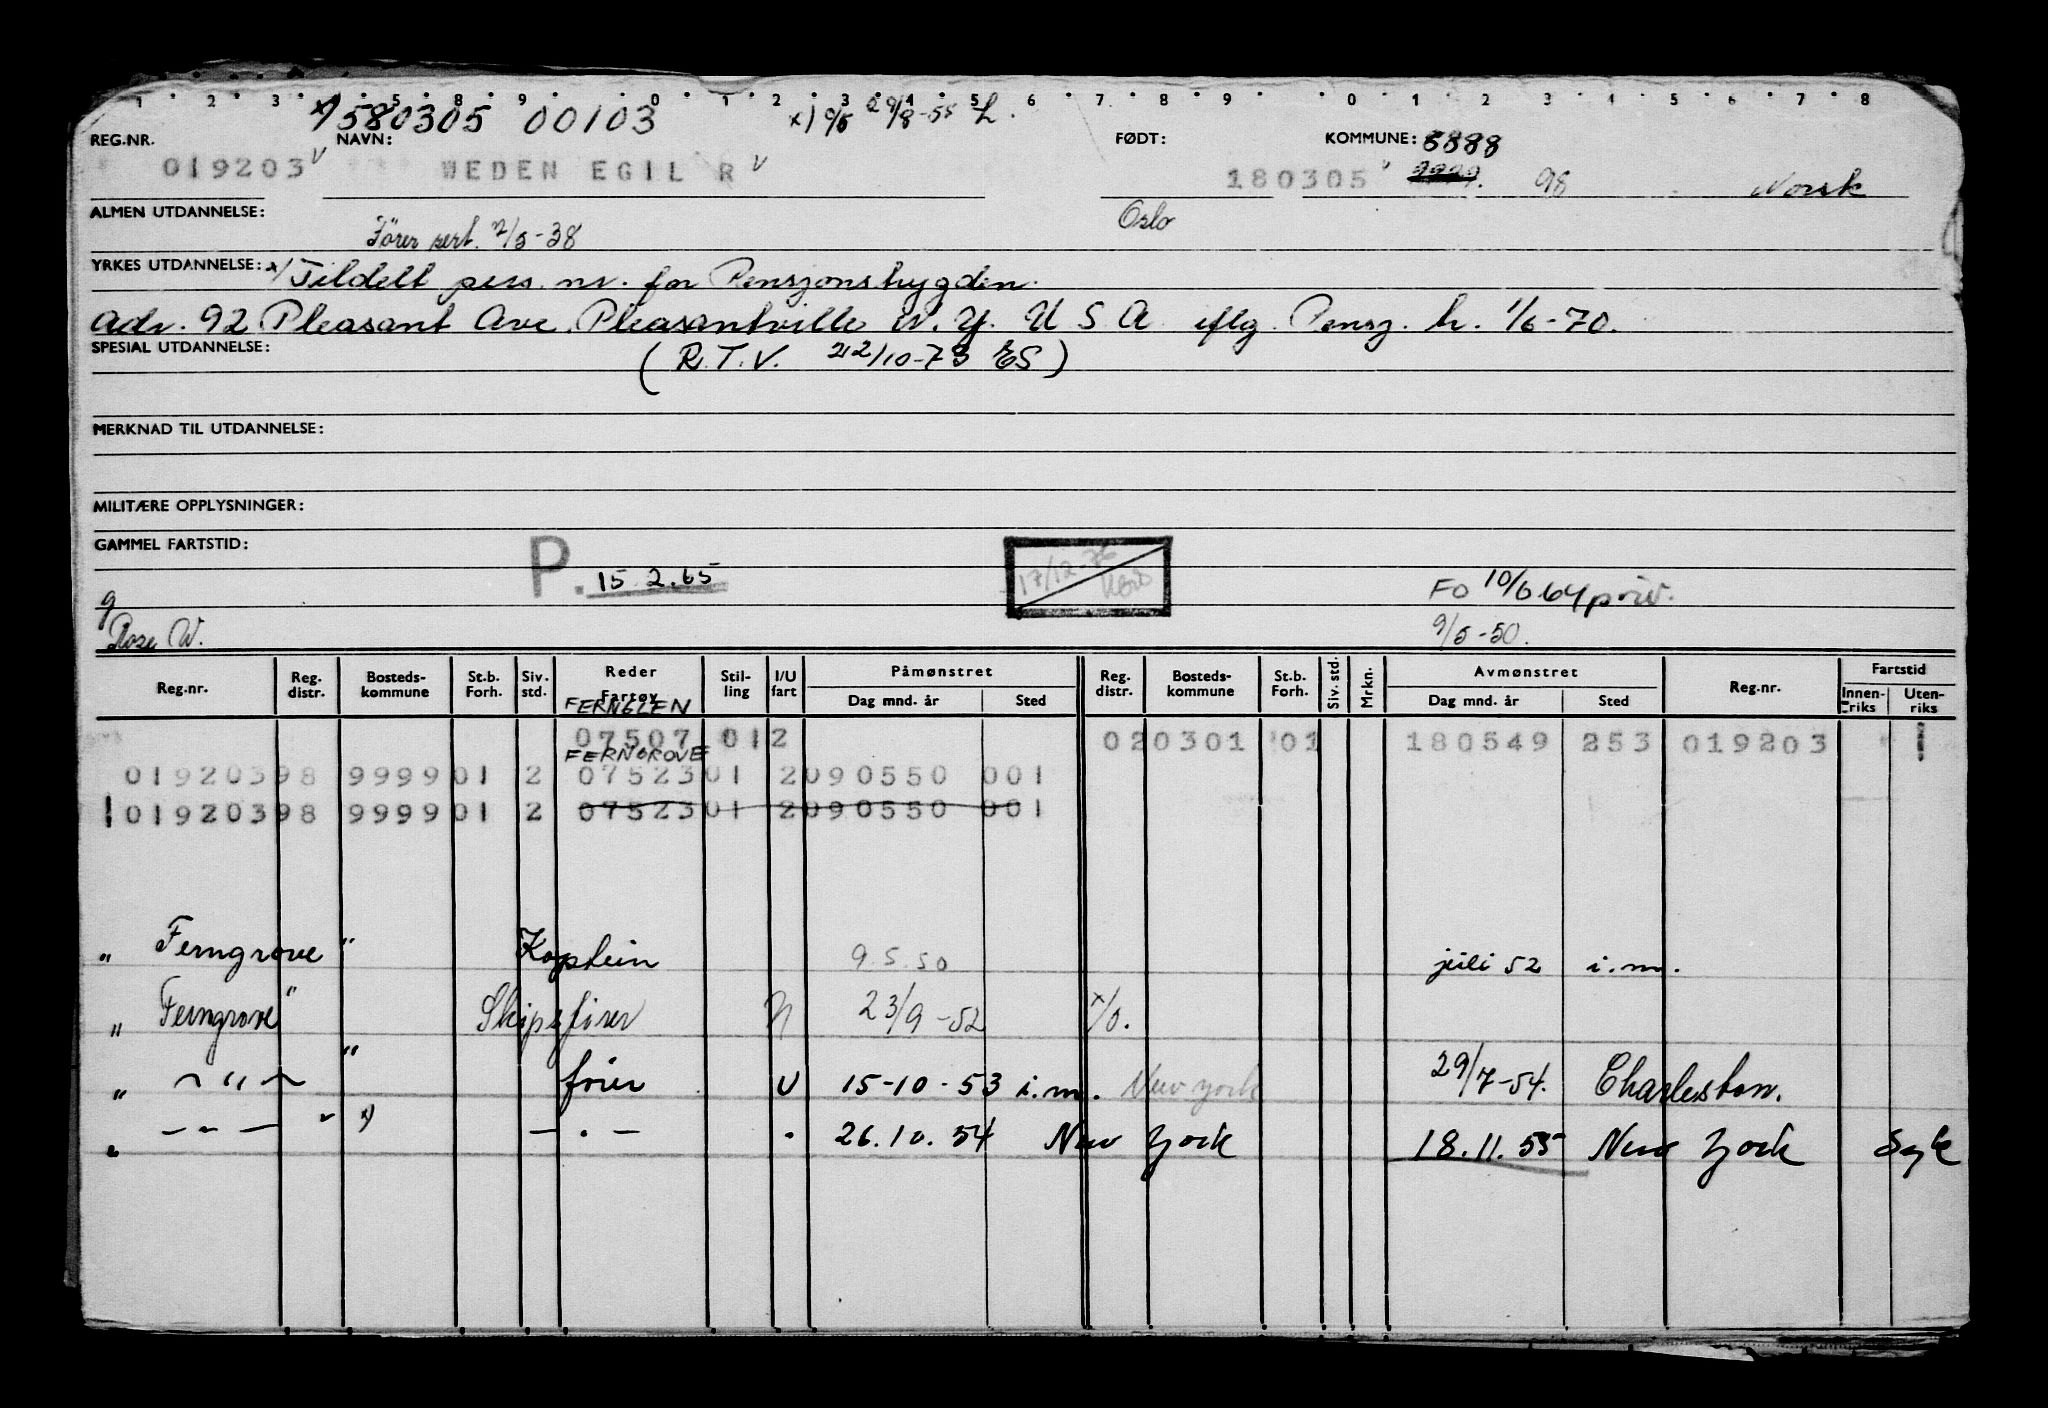 1 2 3 5 8 9 0 1 2 3 4 5 6 7 8 9 0 1 2 3 4 5 6 7 8
x) 580305 00103 x) 29/8-55 L.
REG.NR. NAVN: FØDT: KOMMUNE: 8888
019203 v WEDEN EGIL R v 180305 98 Norsk
ALMEN UTDANNELSE: Oslo
Fører sert. 2/5-38
YRKES UTDANNELSE: x) Tildelt pers. nr. for Pensjonstrygden.
Adr. 92 Pleasant Ave. Pleasantville N.Y. U S A iflg. Pensj. h. 1/6-70.
SPESIAL UTDANNELSE: (R.T.V. 22/10-73 ES)
MERKNAD TIL UTDANNELSE:
MILITÆRE OPPLYSNINGER:
GAMMEL FARTSTID:
P. 15.2.65 17/12-76 FO 10/6 64 priv.
g
Rose W. 9/5-50.
Reg.nr. Reg. distr. Bosteds- kommune St.b. Forh. Siv. std. Reder Fartøy Stil- ling I/U fart Påmønstret Dag mnd. år Sted Reg. distr. Bosteds- kommune St.b. Forh. Siv. std. Mrkn. Avmønstret Dag mnd. år Sted Reg.nr. Fartstid Innen- riks Uten- riks
FERNGLEN
07507 012 020301 01 180549 253 019203 1
FERNGROVE
01920398 999901 2 0752301 2090550 001
01920398 999901 2 0752301 2090550 001
" Ferngrove " Kaptein 9.5.50 juli 52 i.m.
" Ferngrove " Skipsfører U 23/9-52 x/o.
" — " — " fører U 15-10-53 i.m. New York 29/7-54. Charleston.
" — " — v x) — . — . 26.10.54 New York 18.11.55 New York Syk